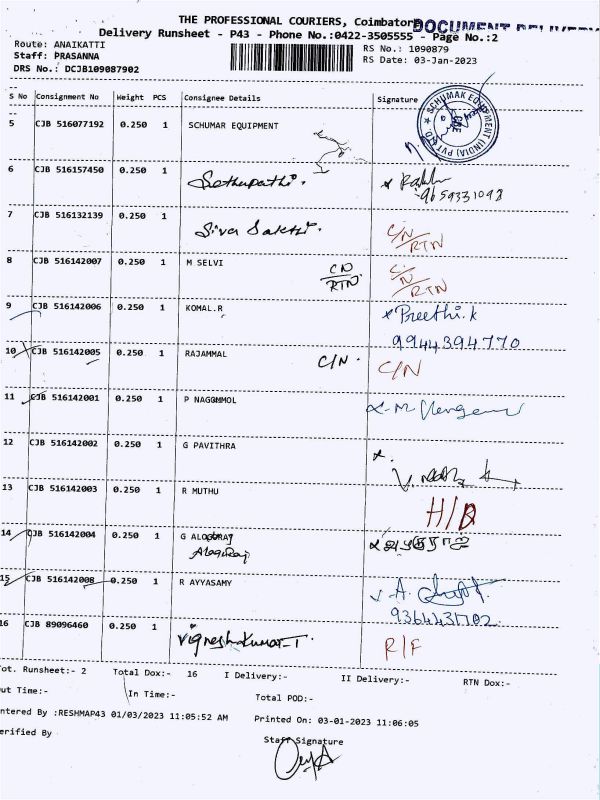 THE PROFESSIONAL COURIERS, Coimbatore
DOCUMENT DELIVERY
Delivery Runsheet - P43 - Phone No.:0422-3505555 - Page No.:2
Route: ANAIKATTI
RS No.: 1090879
Staff: PRASANNA
RS Date: 03-Jan-2023
DRS No.: DCJB109087902
S No Consignment No Weight PCS Consignee Details Signature
5 CJB 516077192 0.250 1 SCHUMAR EQUIPMENT
SCHUMAK EQUIPMENT (INDIA) PVT LTD. CBE
6 CJB 516157450 0.250 1 Sethupathi.
9659331098
7 CJB 516132139 0.250 1 Siva Sakthi. C/N
RTN
8 CJB 516142007 0.250 1 M SELVI CN C/N
RTN RTN
9 CJB 516142006 0.250 1 KOMAL.R Preethi.k
9944394770
10 CJB 516142005 0.250 1 RAJAMMAL C/N. C/N
11 CJB 516142001 0.250 1 P NAGGMMOL
12 CJB 516142002 0.250 1 G PAVITHRA
13 CJB 516142003 0.250 1 R MUTHU H/D
14 CJB 516142004 0.250 1 G ALOGURAJ
Alaguraj
15 CJB 516142008 0.250 1 R AYYASAMY
9364431702
16 CJB 89096460 0.250 1 Vignesh Kumar-T. R/F
ot. Runsheet:- 2 Total Dox:- 16 I Delivery:- II Delivery:- RTN Dox:-
ut Time:- In Time:- Total POD:-
ntered By :RESHMAP43 01/03/2023 11:05:52 AM Printed On: 03-01-2023 11:06:05
erified By
Staff Signature